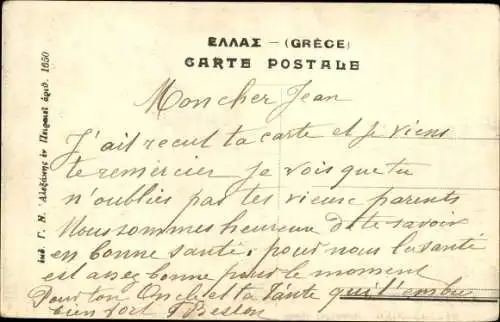 ΕΛΛΑΣ – (GRÈCE)
CARTE POSTALE
Mon cher Jean
J'ait recut ta carte et je viens
te remercier je vois que tu
n'oublies pas tes vieux parents
Nous sommes heureux de te savoir
en bonne santé, pour nous la santé
est assez bonne pour le moment
Pour ton Oncle et ta Tante qui t'embrasse
bien fort G Besson
Ἐκδ. Γ. Ν. Ἀλεξάκης ἐν Πειραιεῖ ἀριθ. 1650